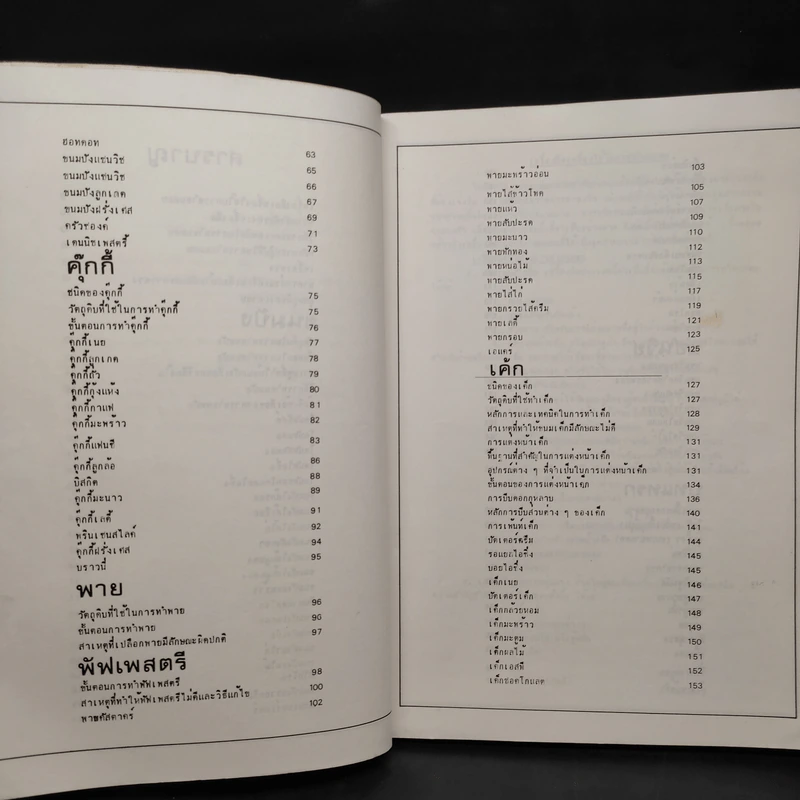 ฮอทดอท
ขนมปังแซนวิช 63
ขนมปังแซนวิช 65
ขนมปังลูกเกด 66
ขนมปังฝรั่งเศส 67
ครัวซองค์ 69
เดนนิชเพสตรี้ 71
73
คุ๊กกี้
ชนิดของคุ๊กกี้ 75
วัตถุดิบที่ใช้ในการทำคุ๊กกี้ 75
ขั้นตอนการทำคุ๊กกี้ 76
คุ๊กกี้เนย 77
คุ๊กกี้ลูกเกด 78
คุ๊กกี้ถั่ว 79
คุ๊กกี้กุ้งแห้ง 80
คุ๊กกี้กาแฟ 81
คุ๊กกี้มะพร้าว 82
คุ๊กกี้แฟนซี 83
คุ๊กกี้ลูกล้อ 86
บิสกิต 88
คุ๊กกี้มะนาว 89
คุ๊กกี้เลดี้ 91
พรินเซนสไลด์ 92
คุ๊กกี้ฝรั่งเศส 94
บราวนี่ 95
พาย
วัตถุดิบที่ใช้ในการทำพาย 96
ขั้นตอนการทำพาย 96
สาเหตุที่เปลือกพายมีลักษณะผิดปกติ 97
พัฟเพสตรี
ขั้นตอนการทำพัฟเพสตรี 98
สาเหตุที่ทำให้พัฟเพสตรีไม่ดีและวิธีแก้ไข 100
พายคัสตาดร์ 102
พายมะพร้าวอ่อน 103
พายไส้ข้าวโพด 105
พายแห้ว 107
พายสับปะรด 109
พายมะนาว 110
พายฟักทอง 112
พายหน่อไม้ 113
พายสับปะรด 115
พายไส้ไก่ 117
พายกรวยไส้ครีม 119
พายเลดี้ 121
พายกรอบ 123
เอแคร์ 125
เค้ก
ชนิดของเค้ก 127
วัตถุดิบที่ใช้ทำเค้ก 127
หลักการและเทคนิคในการทำเค้ก 128
สาเหตุที่ทำให้ขนมเค้กมีลักษณะไม่ดี 129
การแต่งหน้าเค้ก 131
พื้นฐานที่สำคัญในการแต่งหน้าเค้ก 131
อุปกรณ์ต่าง ๆ ที่จำเป็นในการแต่งหน้าเค้ก 131
ขั้นตอนของการแต่งหน้าเค้ก 134
การบีบดอกกุหลาบ 136
หลักการบีบส่วนต่าง ๆ ของเค้ก 140
การเพ้นท์เค้ก 141
บัตเตอร์ครีม 144
รอแยลไอซิ่ง 145
บอยไอซิ่ง 145
เค้กเนย 146
บัตเตอร์เค้ก 147
เค้กกล้วยหอม 148
เค้กมะพร้าว 149
เค้กมะตูม 150
เค้กผลไม้ 151
เค้กเอสพี 152
เค้กชอคโกแลต 153